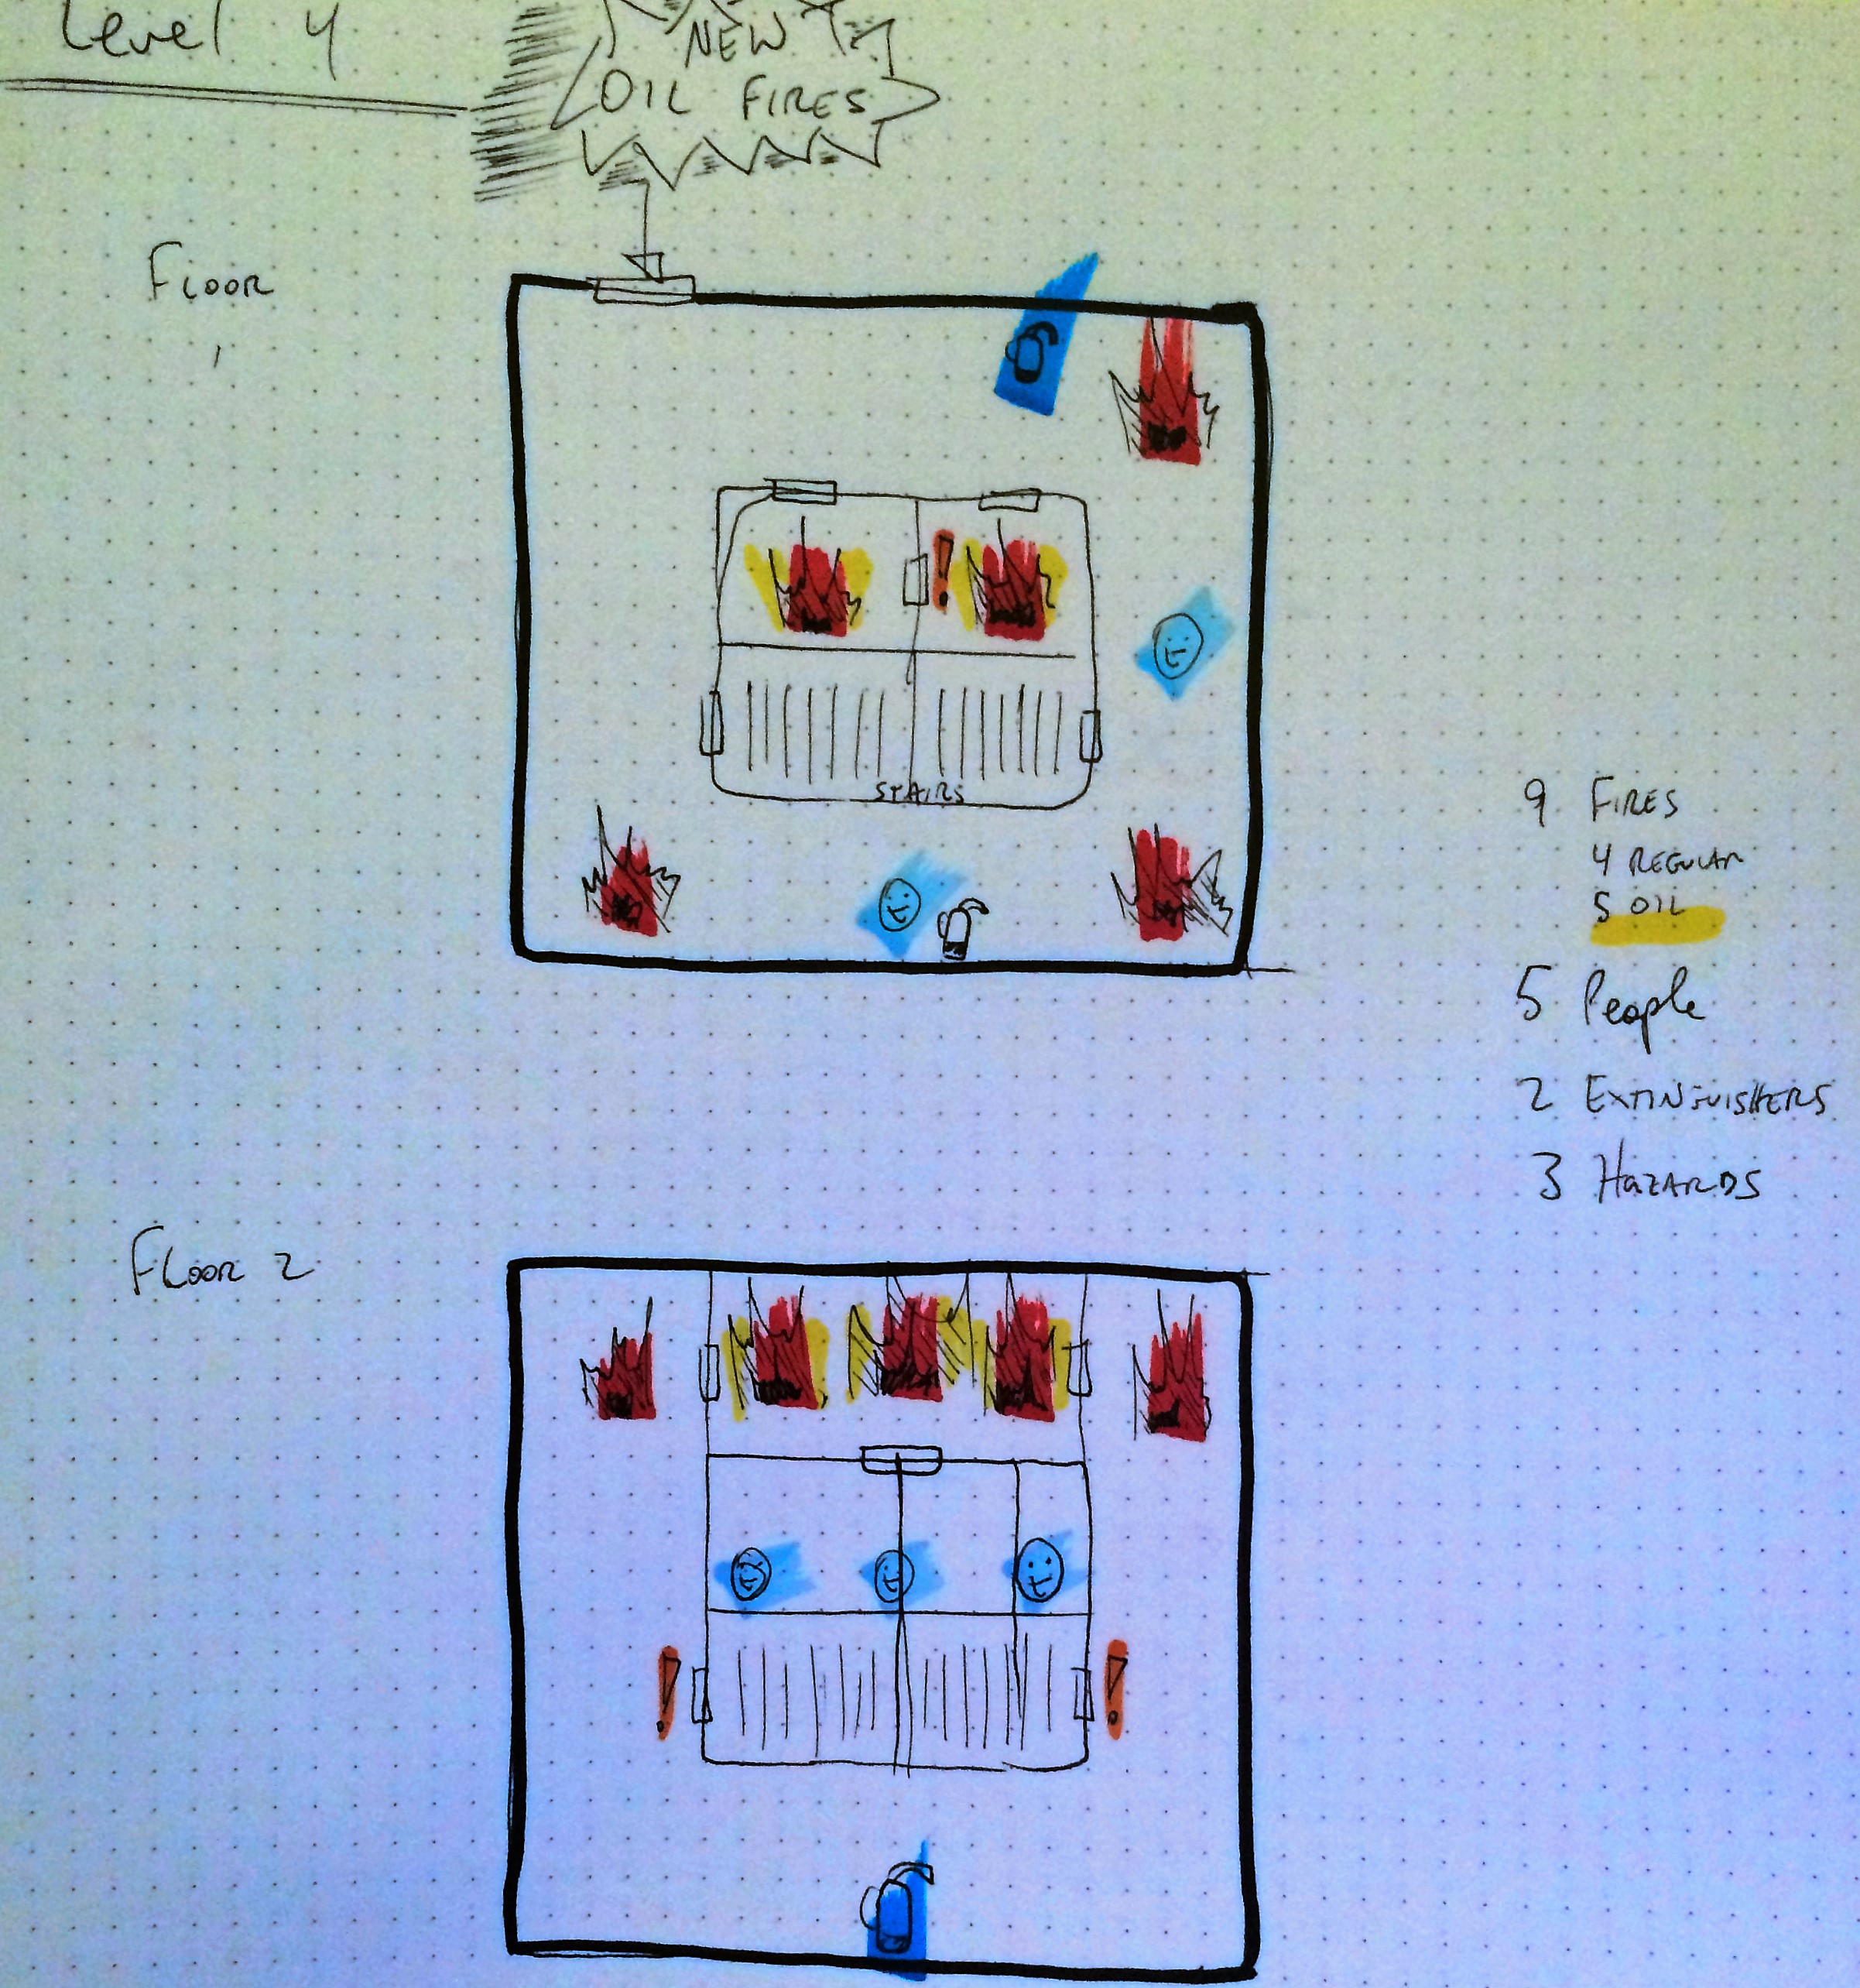 Level 4
NEW
OIL FIRES
FLOOR
1
STAIRS
9 FIRES
4 REGULAR
5 OIL
5 People
2 EXTINGUISHERS
3 HAZARDS
FLOOR 2